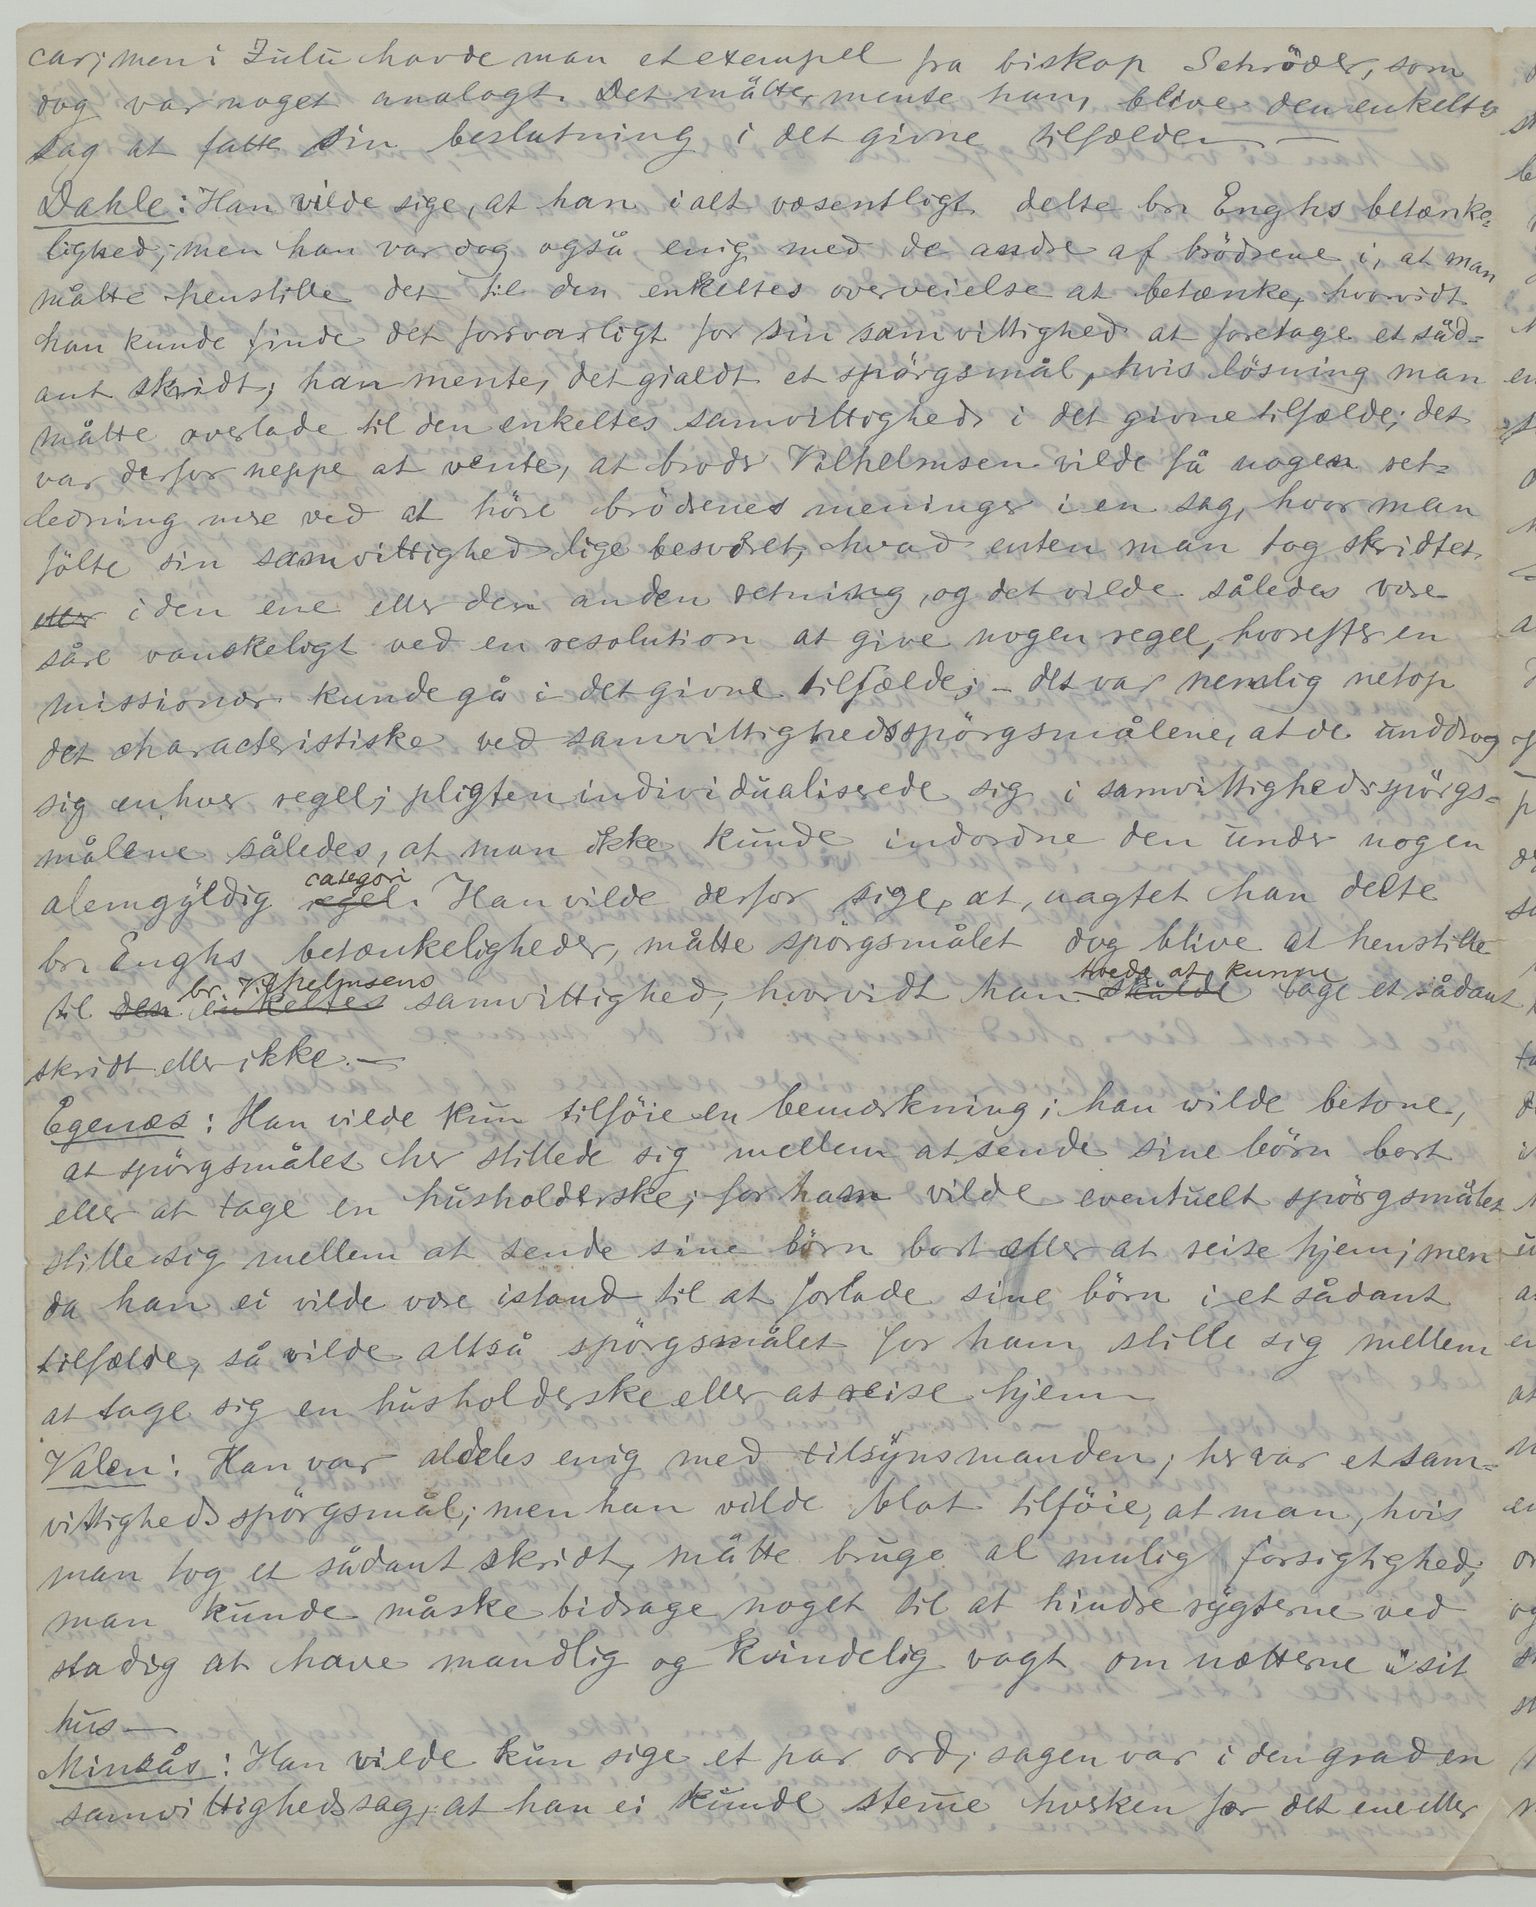 car; men i Zulu havde man et exempel fra biskop Schröder, som
dog var noget analogt. Det måtte, mente han, blive den enkeltes
sag at fatte sin beslutning i det givne tilfælde. —
Dahle: Han vilde sige, at han i alt væsentligt delte br. Enghs betænke-
lighed; men han var dog også enig med de andre af brödrene i, at man
måtte henstille det til den enkeltes overveielse at betænke, hvorvidt
han kunde finde det forsvarligt for sin samvittighed at foretage et såd-
ant skridt; han mente, det gjaldt et spörgsmål, hvis lösning man
måtte overlade til den enkeltes samvittighed i det givne tilfælde; det
var derfor neppe at vente, at broder Vilhelmsen vilde få nogen ret-
ledning mere ved at höre brödrenes meninger i en sag, hvor man
fölte sin samvittighed lige besværet, hvad enten man tog skridtet
eller i den ene eller den anden retning, og det vilde således være
såre vanskeligt ved en resolution at give nogen regel, hvorefter en
missionær kunde gå i det givne tilfælde; – det var nemlig netop
det characteristiske ved samvittighedsspörgsmålene, at de unddrog
sig enhver regel; pligten individualiserede sig i samvittighedsspörgs-
målene således, at man ikke kunde indordne den under nogen
categori
alemgyldig regel. Han vilde derfor sige, at, uagtet han delte
br. Enghs betænkeligheder, måtte spörgsmålet dog blive at henstille
br. Vilhelmsens troede at kunne
til den enkeltes samvittighed, hvorvidt han skulde tage et sådant
skridt eller ikke. —
Egenæs: Han vilde kun tilföie en bemærkning; han vilde betone,
at spörgsmålet her stillede sig mellem at sende sine börn bort
eller at tage en husholderske; for ham vilde eventuelt spörgsmålet
stille sig mellem at sende sine börn bort eller at reise hjem; men
da han ei vilde være istand til at forlade sine börn i et sådant
tilfælde, så vilde altså spörgsmålet for ham stille sig mellem
at tage sig en husholderske eller at reise hjem
Valen: Han var aldeles enig med tilsynsmanden; her var et sam-
vittighedsspörgsmål; men han vilde blot tilföie, at man, hvis
man tog et sådant skridt, måtte bruge al mulig forsigtighed;
man kunde måske bidrage noget til at hindre rygterne ved
stadig at have mandlig og kvindelig vagt om nætterne i sit
hus —
Minsås: Han vilde kun sige et par ord; sagen var i den grad en
samvittighedssag, at han ei kunde stemme hverken for det ene eller